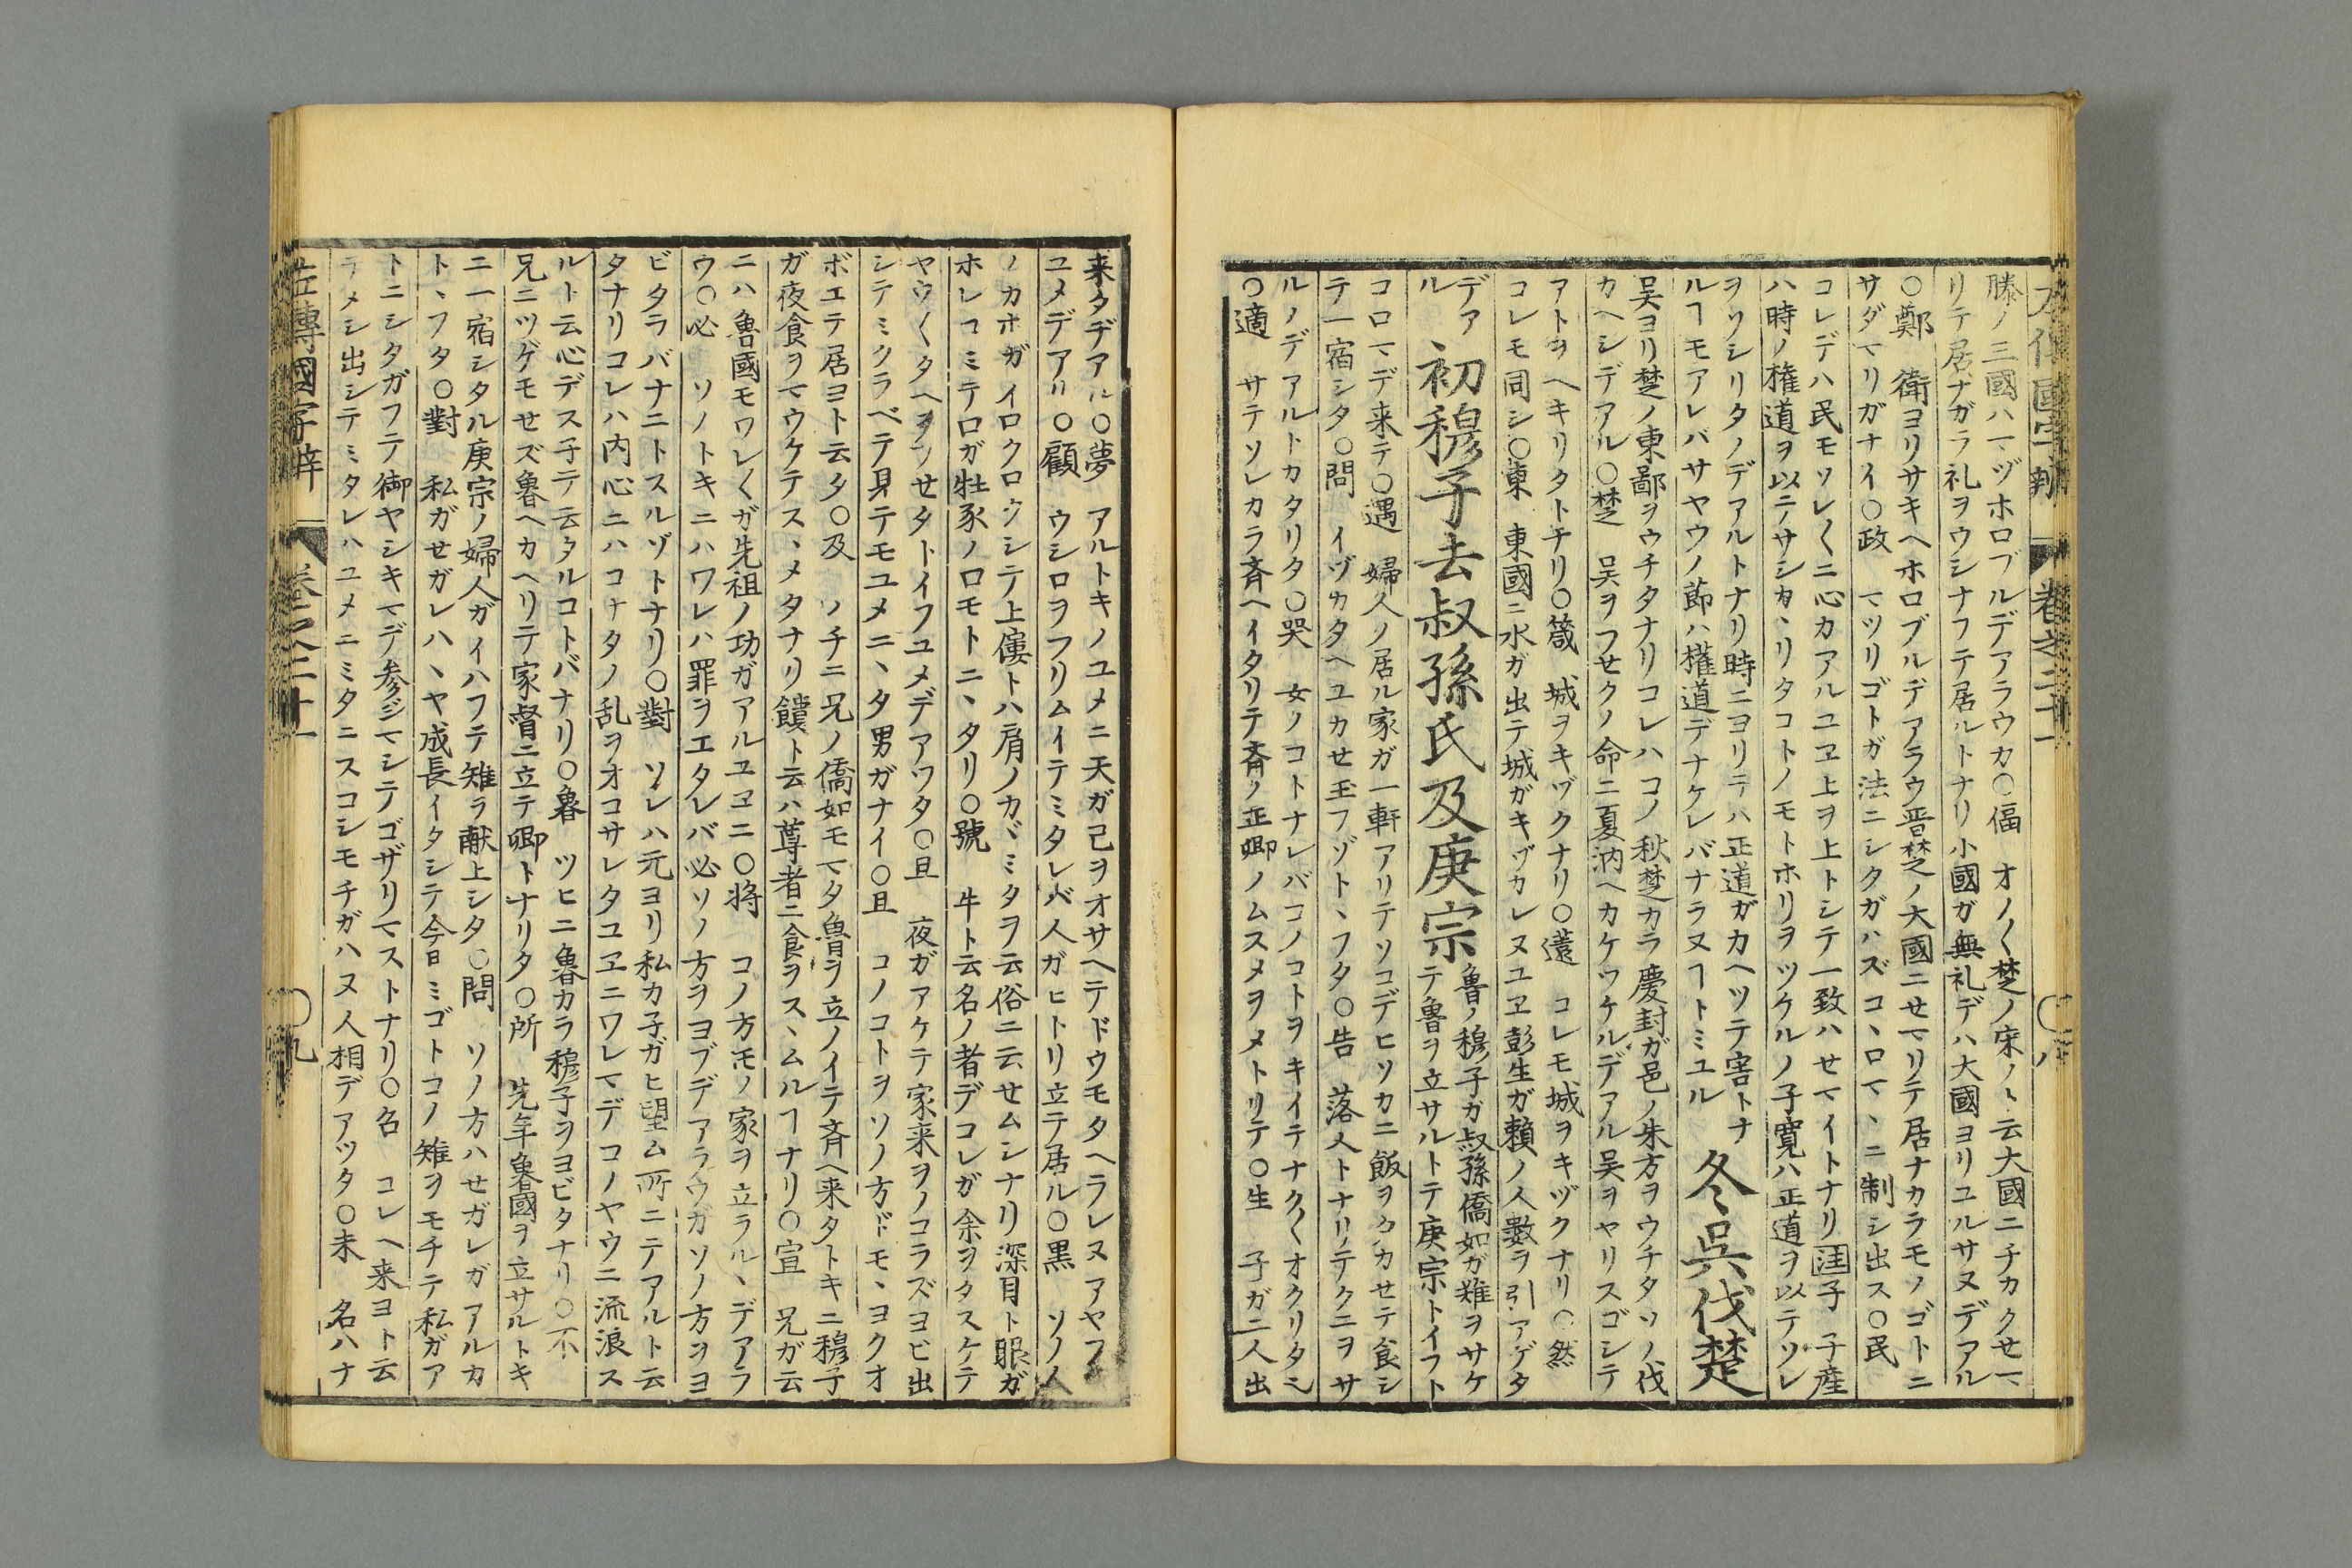 左傳國字辨 卷之二十一 ○八
滕ノ三國ハマヅホロブルデアラウカ○偪 オノ〱楚ノ宋ノ、云大國ニチカクセマ
リテ居ナガラ礼ヲウシナフテ居ルトナリ小國ガ無礼デハ大國ヨリユルサヌデアル
○鄭 衛ヨリサキヘホロブルデアラウ晋楚ノ大國ニセマリテ居ナカラモノゴトニ
サダマリガナイ○政 マツリゴトガ法ニシタガハズコヽロマヽニ制シ出ス○民
コレデハ民モソレ〱ニ心カアルユヱ上ヲ上トシテ一致ハセマイトナリ 子 子産
ハ時ノ権道ヲ以ニテサシカヽリタコトノモトホリヲツケルノ子寛ハ正道ヲ以テソレ
ヲソシリタノデアルトナリ時ニヨリテハ正道ガカヘツテ害トナ
ルヿモアレバサヤウノ莭ハ権道デナケレバナラヌヿトミユル
冬吳伐楚
吴ヨリ楚ノ東鄙ヲウチタナリコレハコノ秋楚カラ慶封ガ邑ノ朱方ヲウチタソノ伐
カヘシデアル○楚 吴ヲフセクノ命ニ夏汭ヘカケツケルデアル吴ヲヤリスゴシテ
アトヲヘキリタトナリ○箴 城ヲキヅクナリ○薳 コレモ城ヲキヅクナリ○然
コレモ同シ○東 東國ニ水ガ出テ城ガキヅカレヌユヱ彭生ガ賴ノ人數ヲ引アゲタ
デア
ル
初穆子去叔孫氏及庚宗
魯ノ穆子ガ叔孫僑如ガ難ヲサケ
テ魯ヲ立サルトテ庚宗トイフト
コロマデ来テ○遇 婦人ノ居ル家ガ一軒アリテソコデヒソカニ飯ヲタカセテ食シ
テ一宿シタ○問 イヅカタヘユカセ玉フゾトヽフタ○告 落人トナリテクニヲサ
ルノデアルトカタリタ○哭 女ノコトナレバコノコトヲキイテナク〱オクリタニ
○適 サテソレカラ斉ヘイタリテ斉ノ正卿ノムスメヲメトリテ○生 子ガ二人出
来タヂアル○夢 アルトキノユメニ天ガ己ヲオサヘテドウモタヘラレヌアヤフ
ユメデアル○顧 ウシロヲフリムイテミタレバ人ガヒトリ立テ居ル○黒 ソノ人
ノカホガイロクロウシテ上僂トハ肩ノカヾミタヲ云俗ニ云セムシナリ深目ト眼ガ
ホレコミテ口ガ牡豕ノ口モトニヽタリ○號 牛ト云名ノ者デコレガ余ヲタスケテ
ヤウ〱タヘヲフセタトイフユメデアワタ○旦 夜ガアケテ家来ヲノコラズヨビ出
シテミクラベテ見テモユメニヽタ男ガナイ○且 コノコトヲソノ方ドモヽヨクオ
ボエテ居ヨト云タ○及 ノチニ兄ノ僑如モマタ魯ヲ立ノイテ斉ヘ来タトキニ穆子
ガ夜食ヲマウケテスヽメタナリ饋ト云ハ尊者ニ食ヲスヽムルヿナリ○宣 兄ガ云
ニハ魯國モワレ〱ガ先祖ノ功ガアルユヱニ○将 コノ方モノ家ヲ立ラルヽデアラ
ウ○必 ソノトキニハワレハ罪ヲエタレバ必ソノ方ヲヨブデアラウガソノ方ヲヨ
ビタラバナニトスルゾトナリ○對 ソレハ元ヨリ私カ子ガヒ望ム所ニテアルト云
タナリコレハ内心ニハコナタノ乱ヲオコサレタユヱニワレマデコノヤウニ流浪ス
ルト云心デス子テ云タルコトバナリ○魯 ツヒニ魯カラ穆子ヲヨビタナリ○不
兄ニツゲモセズ魯ヘカヘリテ家督ニ立テ卿トナリタ○所 先年魯國ヲ立サルトキ
ニ一宿シタル庚宗ノ婦人ガイハフテ雉ヲ献上シタ○問 ソノ方ハセガレガアルカ
トヽフタ○對 私ガセガレハヽヤ成長イタシテ今日ミゴトコノ雉ヲモチテ私ガア
トニシタガフテ御ヤシキマデ参ジマシテゴザリマストナリ○召 コレヘ来ヨト云
テメシ出シテミタレハユメニミタニスコシモチガハヌ人相デアツタ○未 名ハナ
左傳國字辨 卷之二十一 ○九